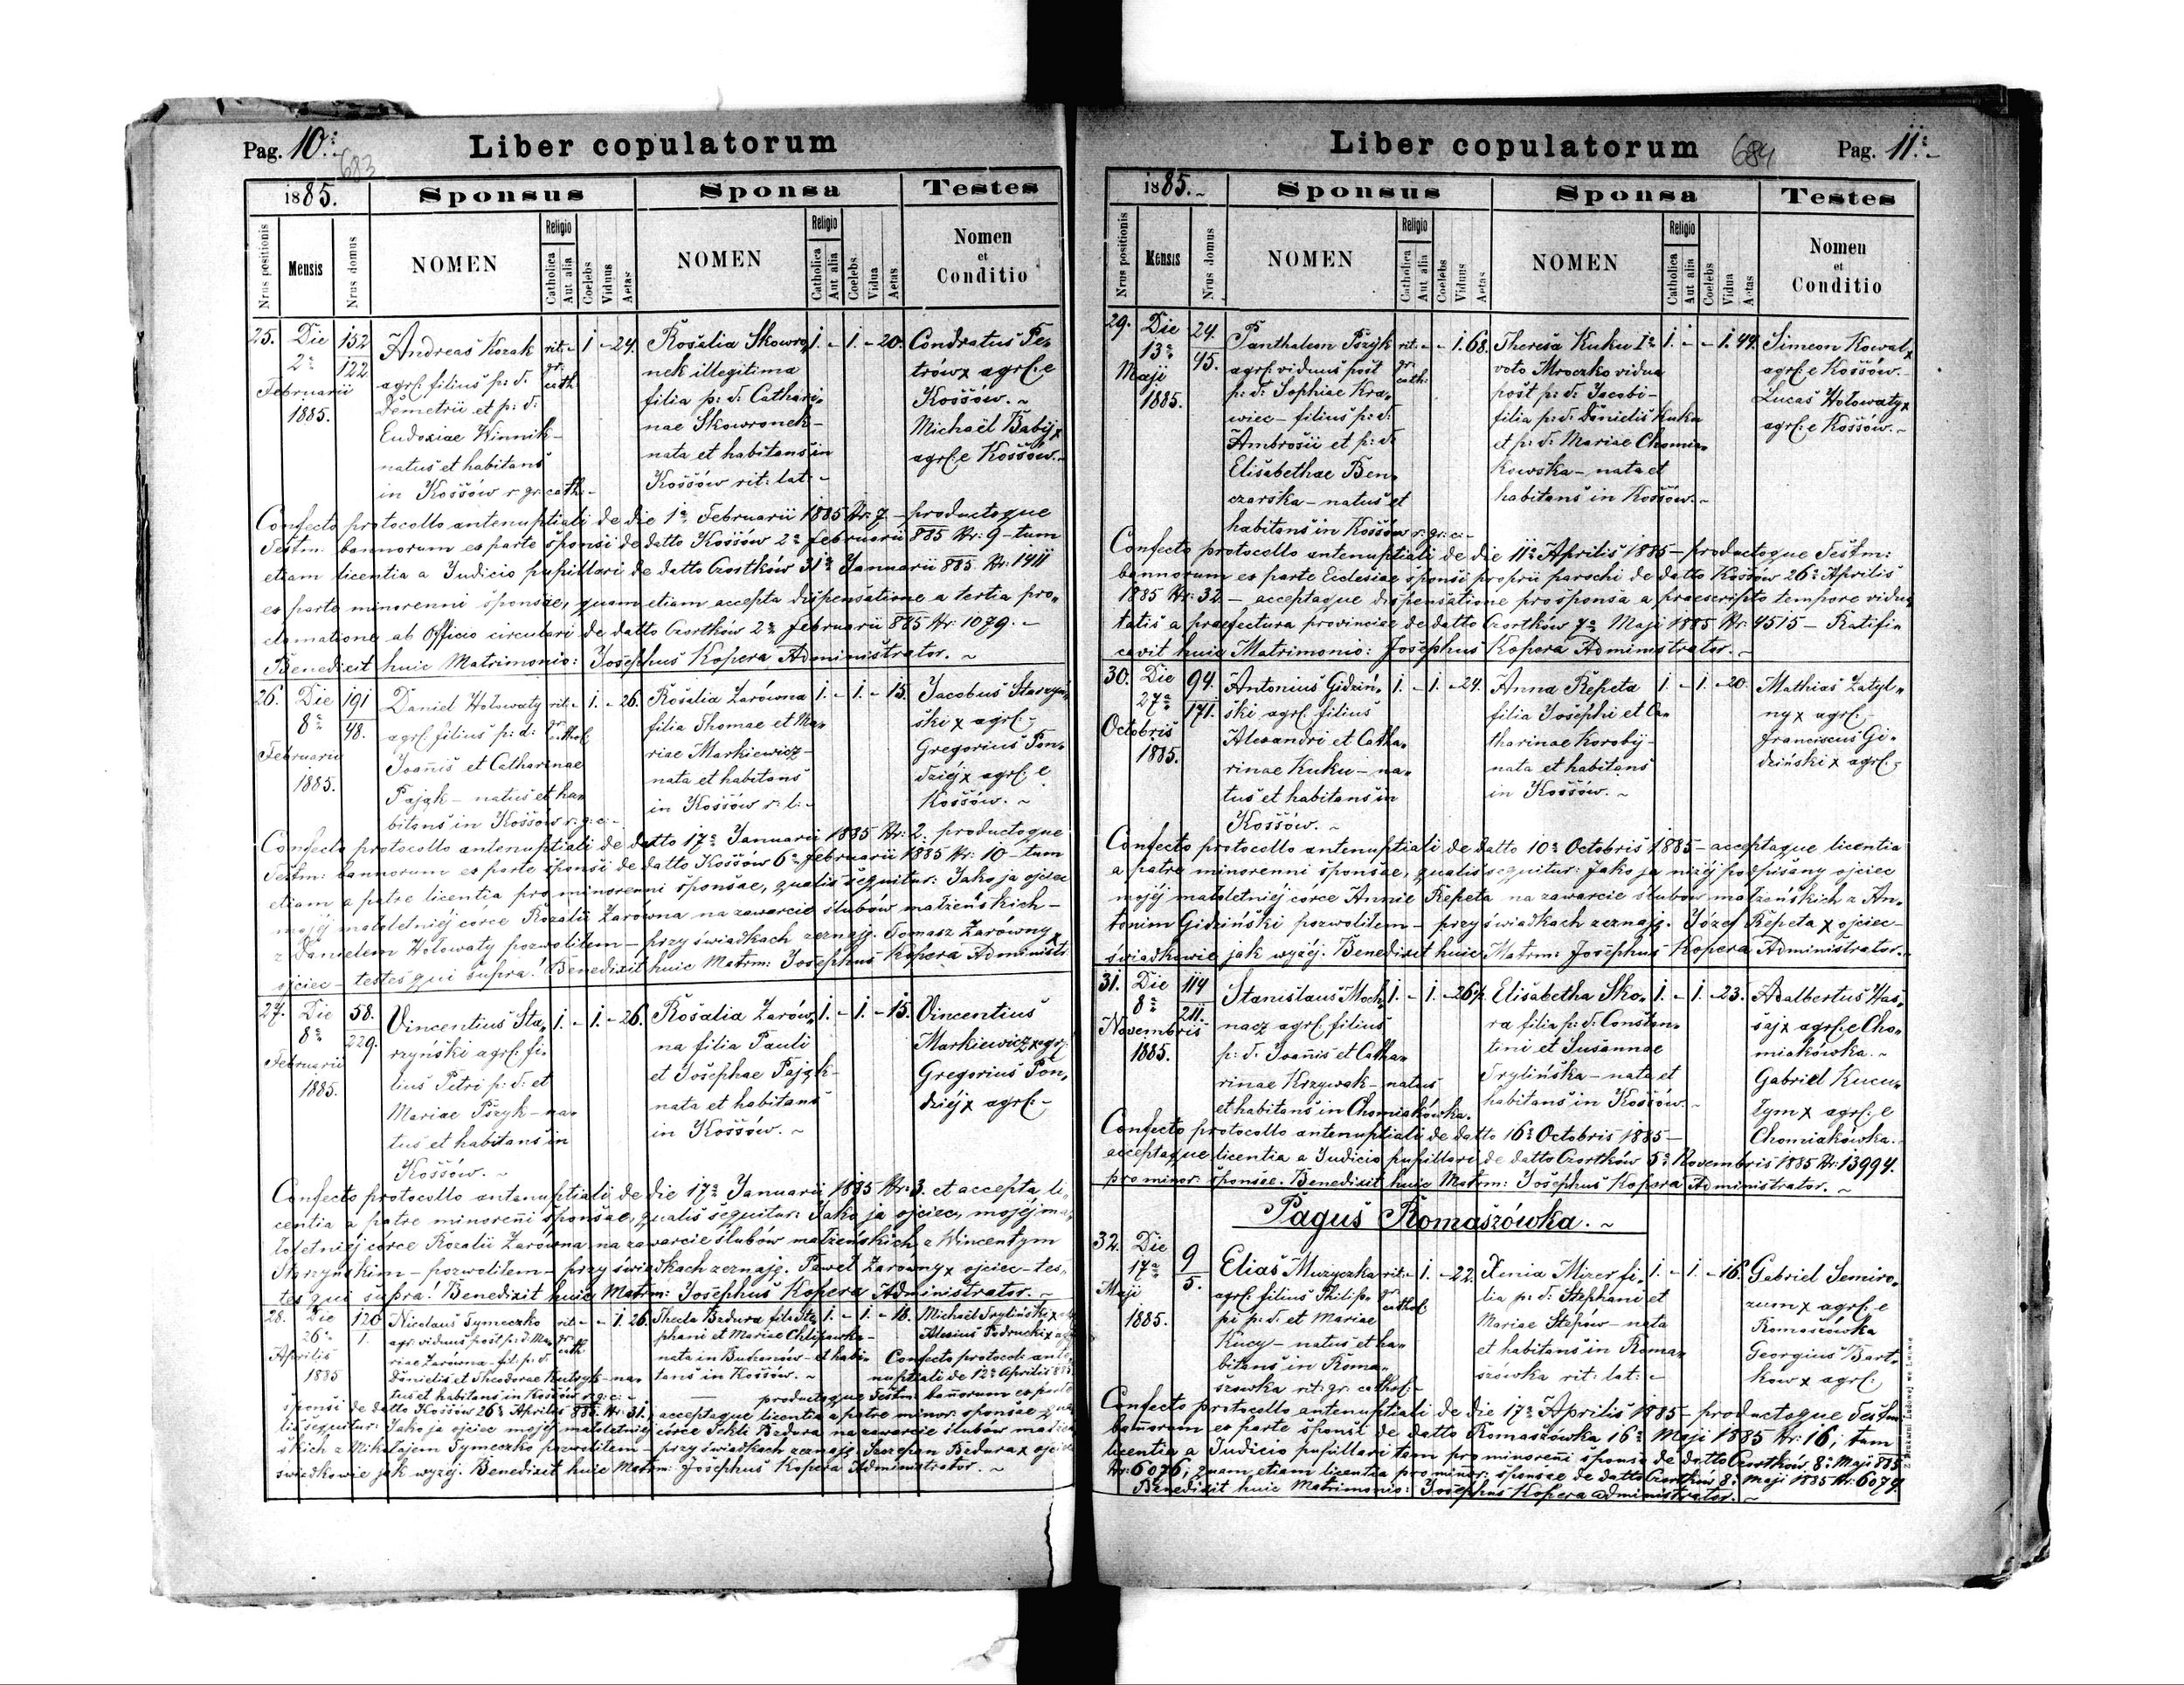 Pag. 10.
683
Liber copulatorum
1885.
Sponsus
Sponsa
Testes
Nrus positionis
Mensis
Nrus domus
NOMEN
Religio
Catholica
Aut alia
Coelebs
Viduus
Aetas
NOMEN
Religio
Catholica
Aut alia
Coelebs
Vidua
Aetas
Nomen
et
Conditio
25. Die 2a Februarii 1885. 152 122
Andreas Kozak
agrl: filius p: d:
Demetrii et p: d:
Eudoxiae Winnik-
natus et habitans
in Kossów r. gr: cath:-
rit: gr: cath: - 1 - 24.
Rosalia Skowro„
nek illegitima
filia p: d: Cathari„
nae Skowronek-
nata et habitans in
Kossów rit: lat: -
1. - 1. - 20.
Condratus Pe„
trów x agrl: e
Kossów. ~
Michaël Babij x
agrl: e Kossów. ~
Confecto protocollo antenuptiali de die 1a Februarii 1885 Nr: 7. - productoque
Testm: bannorum ex parte sponsi de datto Kossów 2a februarii 885 Nr: 9 - tum
etiam licentia a Judicio pupillari de datto Czortków 31a Januarii 885. Nr: 1411
ex parte minorenni sponsae, quam etiam accepta dispensatione a tertia pro„
clamatione ab Officio circulari de datto Czortków 2a februarii 885 Nr: 1079. -
Benedixit huic Matrimonio: Josephus Kopera Administrator. ~
26. Die 8a Februarii 1885. 191 48.
Daniel Hołowaty
agrl: filius p: d:
Joañis et Catharinae
Pająk - natus et ha„
bitans in Kossów r: g: c: -
rit: gr: cathol: - 1. - 26.
Rosalia Żarówna
filia Thomae et Ma„
riae Markiewicz-
nata et habitans
in Kossów r: l: -
1. - 1. - 15.
Jacobus Starzyń„
ski x agrl: -
Gregorius Pon„
dziéj x agrl: e
Kossów. ~
Confecto protocollo antenuptiali de datto 17a Januarii 1885 Nr: 2. productoque
Testm: bannorum ex parte sponsi de datto Kossów 6a februarii 1885 Nr: 10 - tum
etiam a patre licentia pro minorenni sponsae, qualis sequitur: Jako ja ojciec
mojéj małoletniéj córce Rozalii Żarówna na zawarcie ślubów małżeńskich -
z Danielem Hołowaty pozwoliłem - przy świadkach zeznaję. Tomasz Żarówny x
ojciec - testes qui supra! Benedixit huic Matrm: Josephus Kopera Administr
27. Die 8a Februarii 1885. 58. 229.
Vincentius Sta„
rzyński agrl: fi„
lius Petri p: d: et
Mariae Pszyk - na„
tus et habitans in
Kossów. ~
1. - 1. - 26.
Rosalia Żarów„
na filia Pauli
et Josephae Pająk-
nata et habitans
in Kossów. ~
1. - 1. - 15.
Vincentius
Markiewicz x agr:
Gregorius Pon„
dziéj x agrl: -
Confecto protocollo antenuptiali de die 17a Januarii 1885 Nr: 3. et accepta li„
centia a patre minoreñi sponsae, qualis sequitur: Jako ja ojciec, mojej ma„
łoletniéj córce Rozalii Żarówna na zawarcie ślubów małżeńskich z Wincentym
Starzyńskim - pozwoliłem - przy świadkach zeznaję. Paweł Żarówny x ojciec - tes„
tes qui supra! Benedixit huic Matrm: Josephus Kopera Administrator. ~
28. Die 26a Aprilis 1885 120 1.
Nicolaus Tymeczko
agr: viduus post p: d: Ma„
riae Żarówna - fil: p: d:
Danielis et Theodorae Kutsyk - na„
tus et habitans in Kossów r: g: c: -
rit: gr: cath: - - 1. 26.
Thecla Bzdura filia Ste„
phani et Mariae Chlipawka -
nata in Budzanów - et habi„
tans in Kossów. ~
1. - 1. - 18.
Michaël Tryliński x
Alexius Podruchi x
Confecto protocol: ante„
nuptiali de 12a Aprilis 885
productoque Testm: bañorum ex parte
sponsi de datto Kossów 26a Aprilis 885. Nr: 31. acceptaque licentia a patre minor: sponsae qua„
lis sequitur: Jako ja ojciec mojéj małoletniéj córce Tekli Bzdura na zawarcie ślubów małżeń„
skich z Mikołajem Tymeczko pozwoliłem - przy świadkach zeznaję. Szczepan Bzdura x ojciec
świadkowie jak wyżéj. Benedixit huic Matrm: Josephus Kopera Administrator. ~
Liber copulatorum
684
Pag. 11.
1885.
Sponsus
Sponsa
Testes
Nrus positionis
Mensis
Nrus domus
NOMEN
Religio
Catholica
Aut alia
Coelebs
Viduus
Aetas
NOMEN
Religio
Catholica
Aut alia
Coelebs
Vidua
Aetas
Nomen
et
Conditio
29. Die 13a Maji 1885. 24. 45.
Panthaleon Pszyk
agrl: viduus post
p: d: Sophiae Kra„
wiec - filius p: d:
Ambrosii et p: d:
Elisabethae Ben„
czarska - natus et
habitans in Kossów r: gr: c: -
rit: gr: cath: - - 1. 68.
Theresia Kuku 1o
voto Mroczko vidua
post p: d: Jacobi -
filia p: d: Danielis Kuku
et p: d: Mariae Chomia„
kowska - nata et
habitans in Kossów. ~
1. - - 1. 44.
Simeon Kowal x
agrl: e Kossów. -
Lucas Hołowaty x
agrl: e Kossów. ~
Confecto protocollo antenuptiali de die 11a Aprilis 1885 - productoque Testm:
bannorum ex parte Ecclesiae sponsi proprii parochi de datto Kossów 26a Aprilis
1885 Nr: 32. - acceptaque dispensatione pro sponsa a praescripto tempore vidui„
tatis a praefectura provinciae de datto Czortków 7a Maji 1885 Nr: 4515 - Ratifi„
cavit huic Matrimonio: Josephus Kopera Administrator. ~
30. Die 27a Octobris 1885. 94. 171.
Antonius Gidziń„
ski agrl: filius
Alexandri et Catha„
rinae Kuku - na„
tus et habitans in
Kossów. ~
1. - 1. - 24.
Anna Rzepeta
filia Josephi et Ca„
tharinae Korobij -
nata et habitans
in Kossów. ~
1. - 1. - 20.
Mathias Zatyl„
ny x agrl: -
Franciscus Gi„
dziński x agrl: -
Confecto protocollo antenuptiali de datto 10a Octobris 1885 - acceptaque licentia
a patre minorenni sponsae, qualis sequitur: Jako ja niżéj podpisany ojciec
mojéj małoletniéj córce Annie Rzepeta na zawarcie ślubów małżeńskich z An„
tonim Gidziński pozwoliłem - przy świadkach zeznaję. Józef Rzepeta x ojciec -
świadkowie jak wyżéj. Benedixit huic Matrm: Josephus Kopera Administrator. ~
31. Die 8a Novembris 1885. 114 211.
Stanislaus Moch„
nacz agrl: filius
p: d: Joañis et Catha„
rinae Krzywak - natus
et habitans in Chomiakówka.
1. - 1. - 26½.
Elisabetha Sko„
ra filia p: d: Constan„
tini et Susannae
Trylińska - nata et
habitans in Kossów. ~
1. - 1. - 23.
Adalbertus Has„
saj x agrl: e Cho„
miakówka. ~
Gabriel Kucu„
łym x agrl: e
Chomiakówka. -
Confecto protocollo antenuptiali de datto 16a Octobris 1885 -
acceptaque licentia a Judicio pupillari de datto Czortków 5a Novembris 1885 Nr: 13994.
pro minor: sponsae. Benedixit huic Matrm: Josephus Kopera Administrator. ~
Pagus Romaszówka. ~
32. Die 17a Maji 1885. 9 5.
Elias Muzyczka
agrl: filius Philip„
pi p: d: et Mariae
Kucy - natus et ha„
bitans in Roma„
szówka rit: gr: cathol: -
rit: gr: cathol: - 1. - 22.
Xenia Mizer fi„
lia p: d: Stephani et
Mariae Stepów - nata
et habitans in Roma„
szówka rit: lat: -
1. - 1. - 16.
Gabriel Semiro„
zum x agrl: e
Romaszówka
Georgius Bart„
kow x agrl:
Confecto protocollo antenuptiali de die 17a Aprilis 1885 - productoque Testm:
bañorum ex parte sponsi de datto Romaszówka 16a Maji 1885 Nr: 16; tum
licentia a Judicio pupillari tam pro minoreñi sponso de datto Czortków 8a Maji 885
Nr: 6076; quam etiam licentia pro minor: sponsae de datto Czortków 8a Maji 1885 Nr: 6079.
Benedixit huic Matrimonio: Josephus Kopera administrator. ~
Z Drukarni Ludowej we Lwowie